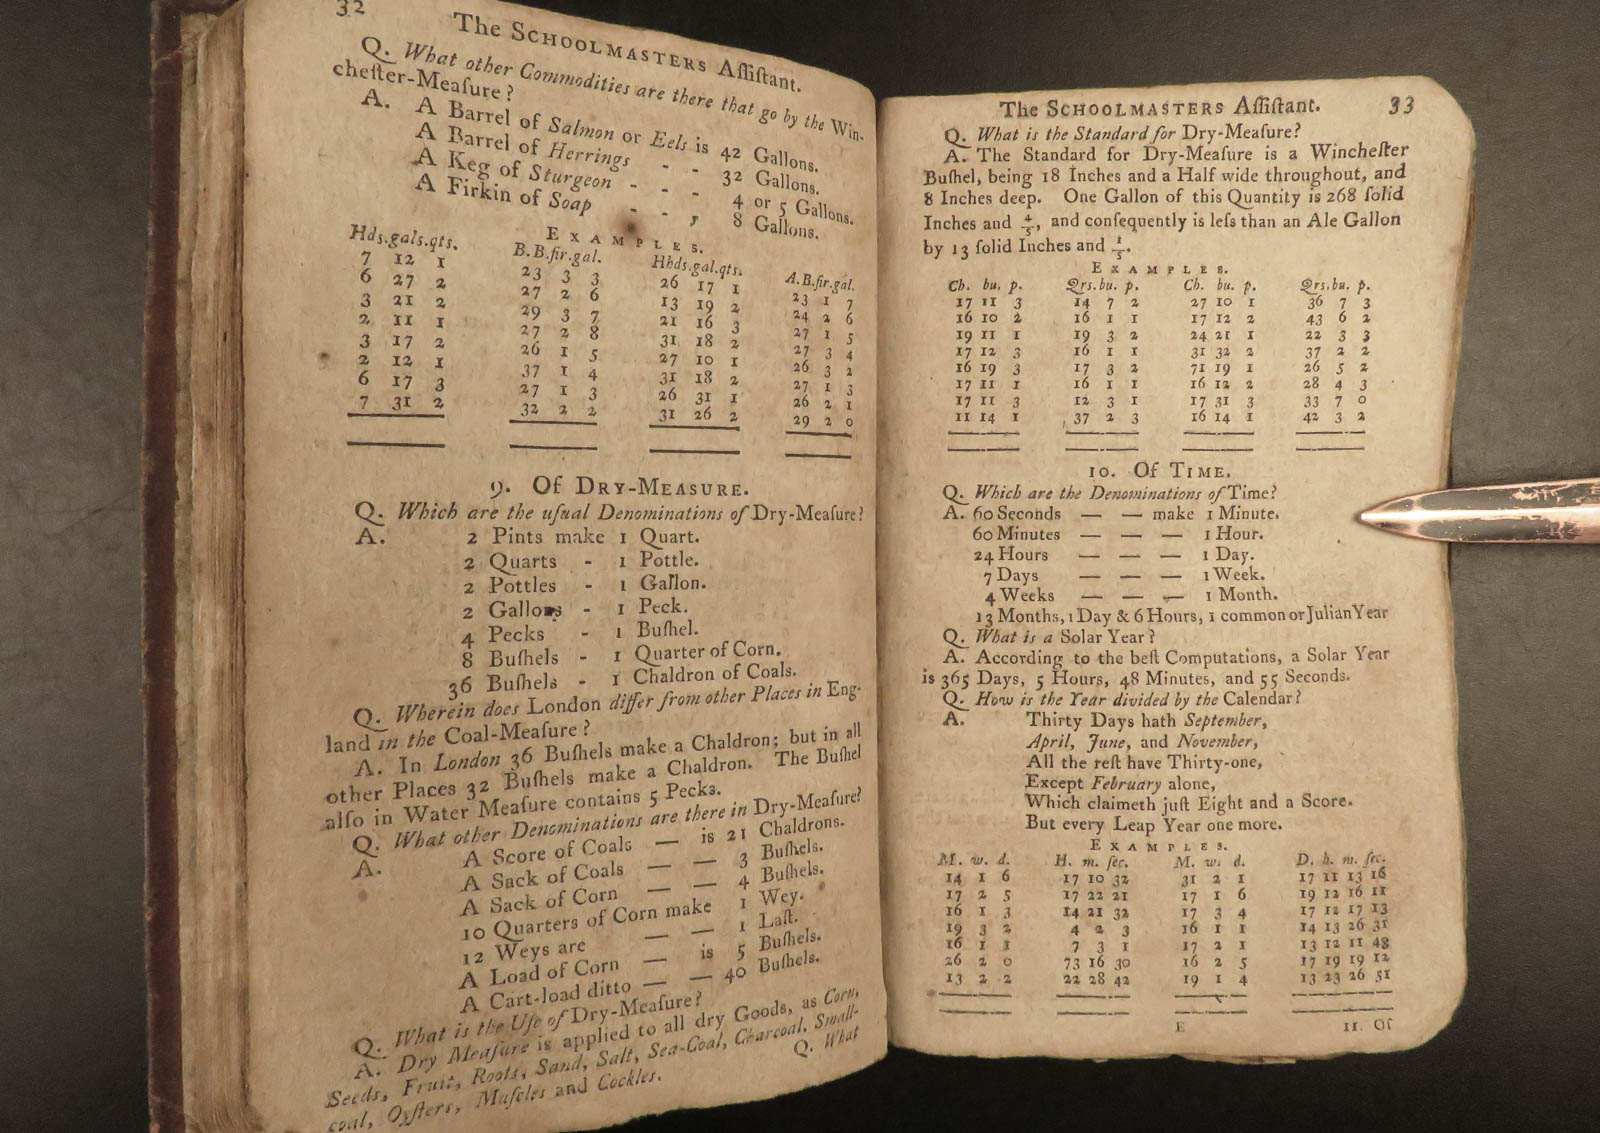 32
The SCHOOLMASTERS Aſſiſtant.
Q. What other Commodities are there that go by the Win-
cheſter-Meaſure?
A. A Barrel of Salmon or Eels is 42 Gallons.
A Barrel of Herrings - - 32 Gallons.
A Keg of Sturgeon - - - 4 or 5 Gallons.
A Firkin of Soap - - , 8 Gallons.
EXAMPLES.
Hds. gals. qts.
7 12 1
6 27 2
3 21 2
2 11 1
3 17 2
2 12 1
6 17 3
7 31 2
B.B. fir. gal.
23 3 3
27 2 6
29 3 7
27 2 8
26 1 5
37 1 4
27 1 3
32 2 2
Hhds. gal. qts.
26 17 1
13 19 2
21 16 3
31 18 2
27 10 1
31 18 2
26 31 1
31 26 2
A.B. fir. gal.
23 1 7
24 2 6
27 1 5
27 3 4
26 3 2
27 1 3
26 2 1
29 2 0
9. Of DRY-MEASURE.
Q. Which are the uſual Denominations of Dry-Meaſure?
A. 2 Pints make 1 Quart.
2 Quarts - 1 Pottle.
2 Pottles - 1 Gallon.
2 Gallons - 1 Peck.
4 Pecks - 1 Buſhel.
8 Buſhels - 1 Quarter of Corn.
36 Buſhels - 1 Chaldron of Coals.
Q. Wherein does London differ from other Places in Eng-
land in the Coal-Meaſure?
A. In London 36 Buſhels make a Chaldron; but in all
other Places 32 Buſhels make a Chaldron. The Buſhel
alſo in Water Meaſure contains 5 Pecks.
Q. What other Denominations are there in Dry-Meaſure?
A. A Score of Coals — is 21 Chaldrons.
A Sack of Coals — — 3 Buſhels.
A Sack of Corn — — 4 Buſhels.
10 Quarters of Corn make 1 Wey.
12 Weys are — — 1 Laſt.
A Load of Corn — is 5 Buſhels.
A Cart-load ditto — — 40 Buſhels.
Q. What is the Uſe of Dry-Meaſure?
A. Dry Meaſure is applied to all dry Goods, as Corn,
Seeds, Fruit, Roots, Sand, Salt, Sea-Coal, Charcoal, Small-
coal, Oyſters, Muſcles and Cockles.
Q. What
The SCHOOLMASTERS Aſſiſtant. 33
Q. What is the Standard for Dry-Meaſure?
A. The Standard for Dry-Meaſure is a Wincheſter
Buſhel, being 18 Inches and a Half wide throughout, and
8 Inches deep. One Gallon of this Quantity is 268 ſolid
Inches and 4/5, and conſequently is leſs than an Ale Gallon
by 13 ſolid Inches and 1/5.
EXAMPLES.
Ch. bu. p.
17 11 3
16 10 2
19 11 1
17 12 3
16 19 3
17 11 1
17 11 3
11 14 1
Qrs. bu. p.
14 7 2
16 1 1
19 3 2
16 1 1
17 3 2
16 1 1
12 3 1
37 2 3
Ch. bu. p.
27 10 1
17 12 2
24 21 1
31 32 2
71 19 1
16 12 2
17 31 3
16 14 1
Qrs. bu. p.
36 7 3
43 6 2
22 3 3
37 2 2
26 5 2
28 4 3
33 7 0
42 3 2
10. Of TIME.
Q. Which are the Denominations of Time?
A. 60 Seconds — — make 1 Minute.
60 Minutes — — — 1 Hour.
24 Hours — — — 1 Day.
7 Days — — — 1 Week.
4 Weeks — — — 1 Month.
13 Months, 1 Day & 6 Hours, 1 common or Julian Year
Q. What is a Solar Year?
A. According to the beſt Computations, a Solar Year
is 365 Days, 5 Hours, 48 Minutes, and 55 Seconds.
Q. How is the Year divided by the Calendar?
A. Thirty Days hath September,
April, June, and November,
All the reſt have Thirty-one,
Except February alone,
Which claimeth juſt Eight and a Score.
But every Leap Year one more.
EXAMPLES.
M. w. d.
14 1 6
17 2 5
16 1 3
19 3 2
16 1 1
26 2 0
13 2 2
H. m. ſec.
17 10 32
17 22 21
14 21 32
4 2 3
7 3 1
73 16 30
22 28 42
M. w. d.
31 2 1
17 1 6
17 3 4
16 1 1
17 2 1
16 2 5
19 1 4
D. h. m. ſec.
17 11 13 16
19 12 16 11
17 12 17 13
14 13 26 31
13 12 11 48
17 19 19 12
13 23 26 51
E 11. Of